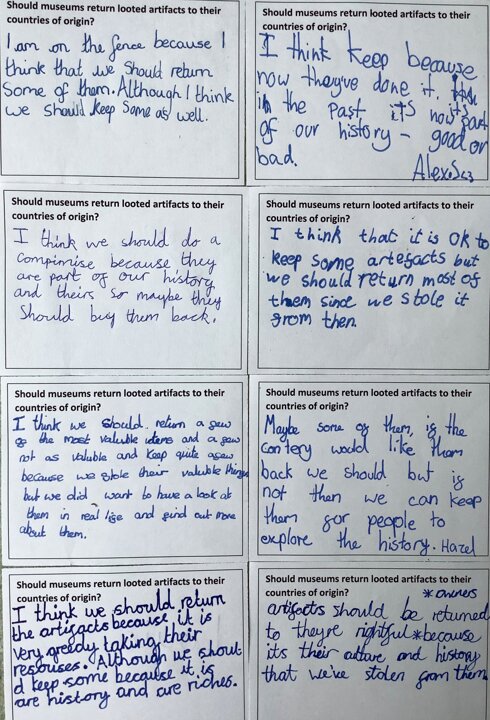 Should museums return looted artifacts to their
countries of origin?
I am on the fence because I
think that we should return
some of them. Although I think
we should keep some as well.
Should museums return looted artifacts to their
countries of origin?
I think keep because
now they've done it.
in the past it's now it's part
of our history – good or
bad.
Alex.S
Should museums return looted artifacts to their
countries of origin?
I think we should do a
compimise because they
are part of our history
and theirs so maybe they
should buy them back.
Should museums return looted artifacts to their
countries of origin?
I think that it is OK to
keep some artefacts but
we should return most of
them since we stole it
from then.
Should museums return looted artifacts to their
countries of origin?
I think we should return a few
of the most valuble idems and a few
not as valuble and keep quite a few
because we stole their valuble things
but we did want to have a look at
them in real life and find out more
about them.
Should museums return looted artifacts to their
countries of origin?
Maybe some of them, if the
contery would like them
back we should but if
not then we can keep
them for people to
explore the history. Hazel
Should museums return looted artifacts to their
countries of origin?
I think we should return
the artifacts because it is
very greedy taking their
resouses. Although we shoul
d keep some because it is
are history and are riches.
Should museums return looted artifacts to their
countries of origin? *owners
artifacts should be returned
to they're rightful *because
its their culture and history
that we've stolen from them